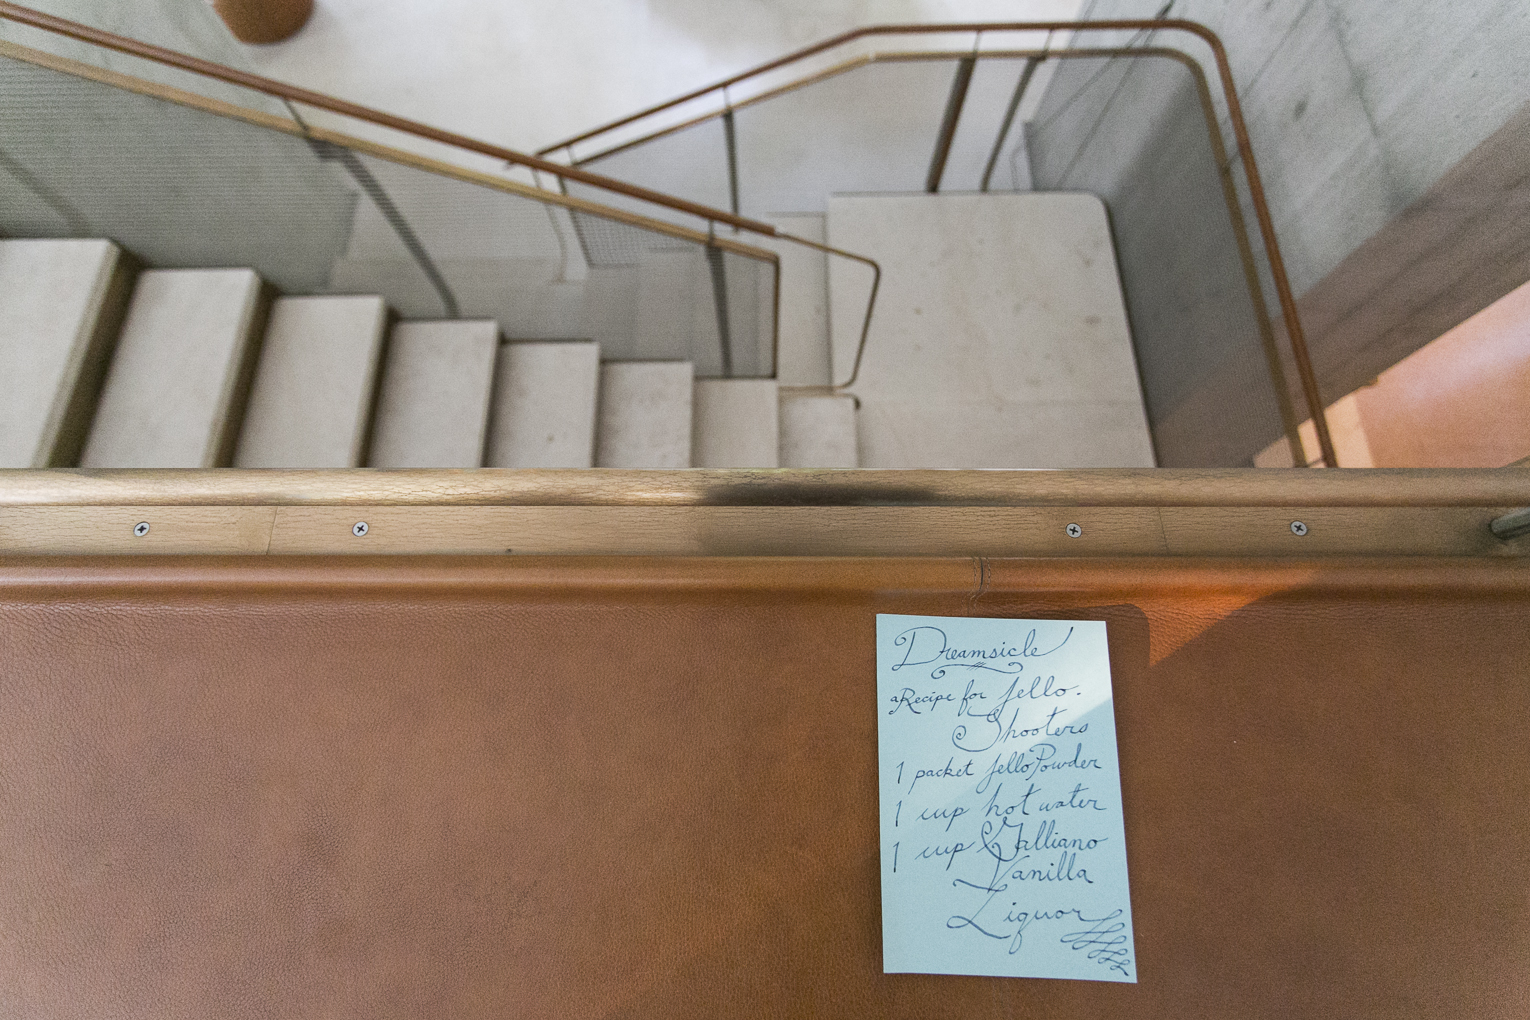 Dreamsicle
a Recipe for Jello.
Shooters
1 packet Jello Powder
1 cup hot water
1 cup Galliano
Vanilla
Liquor